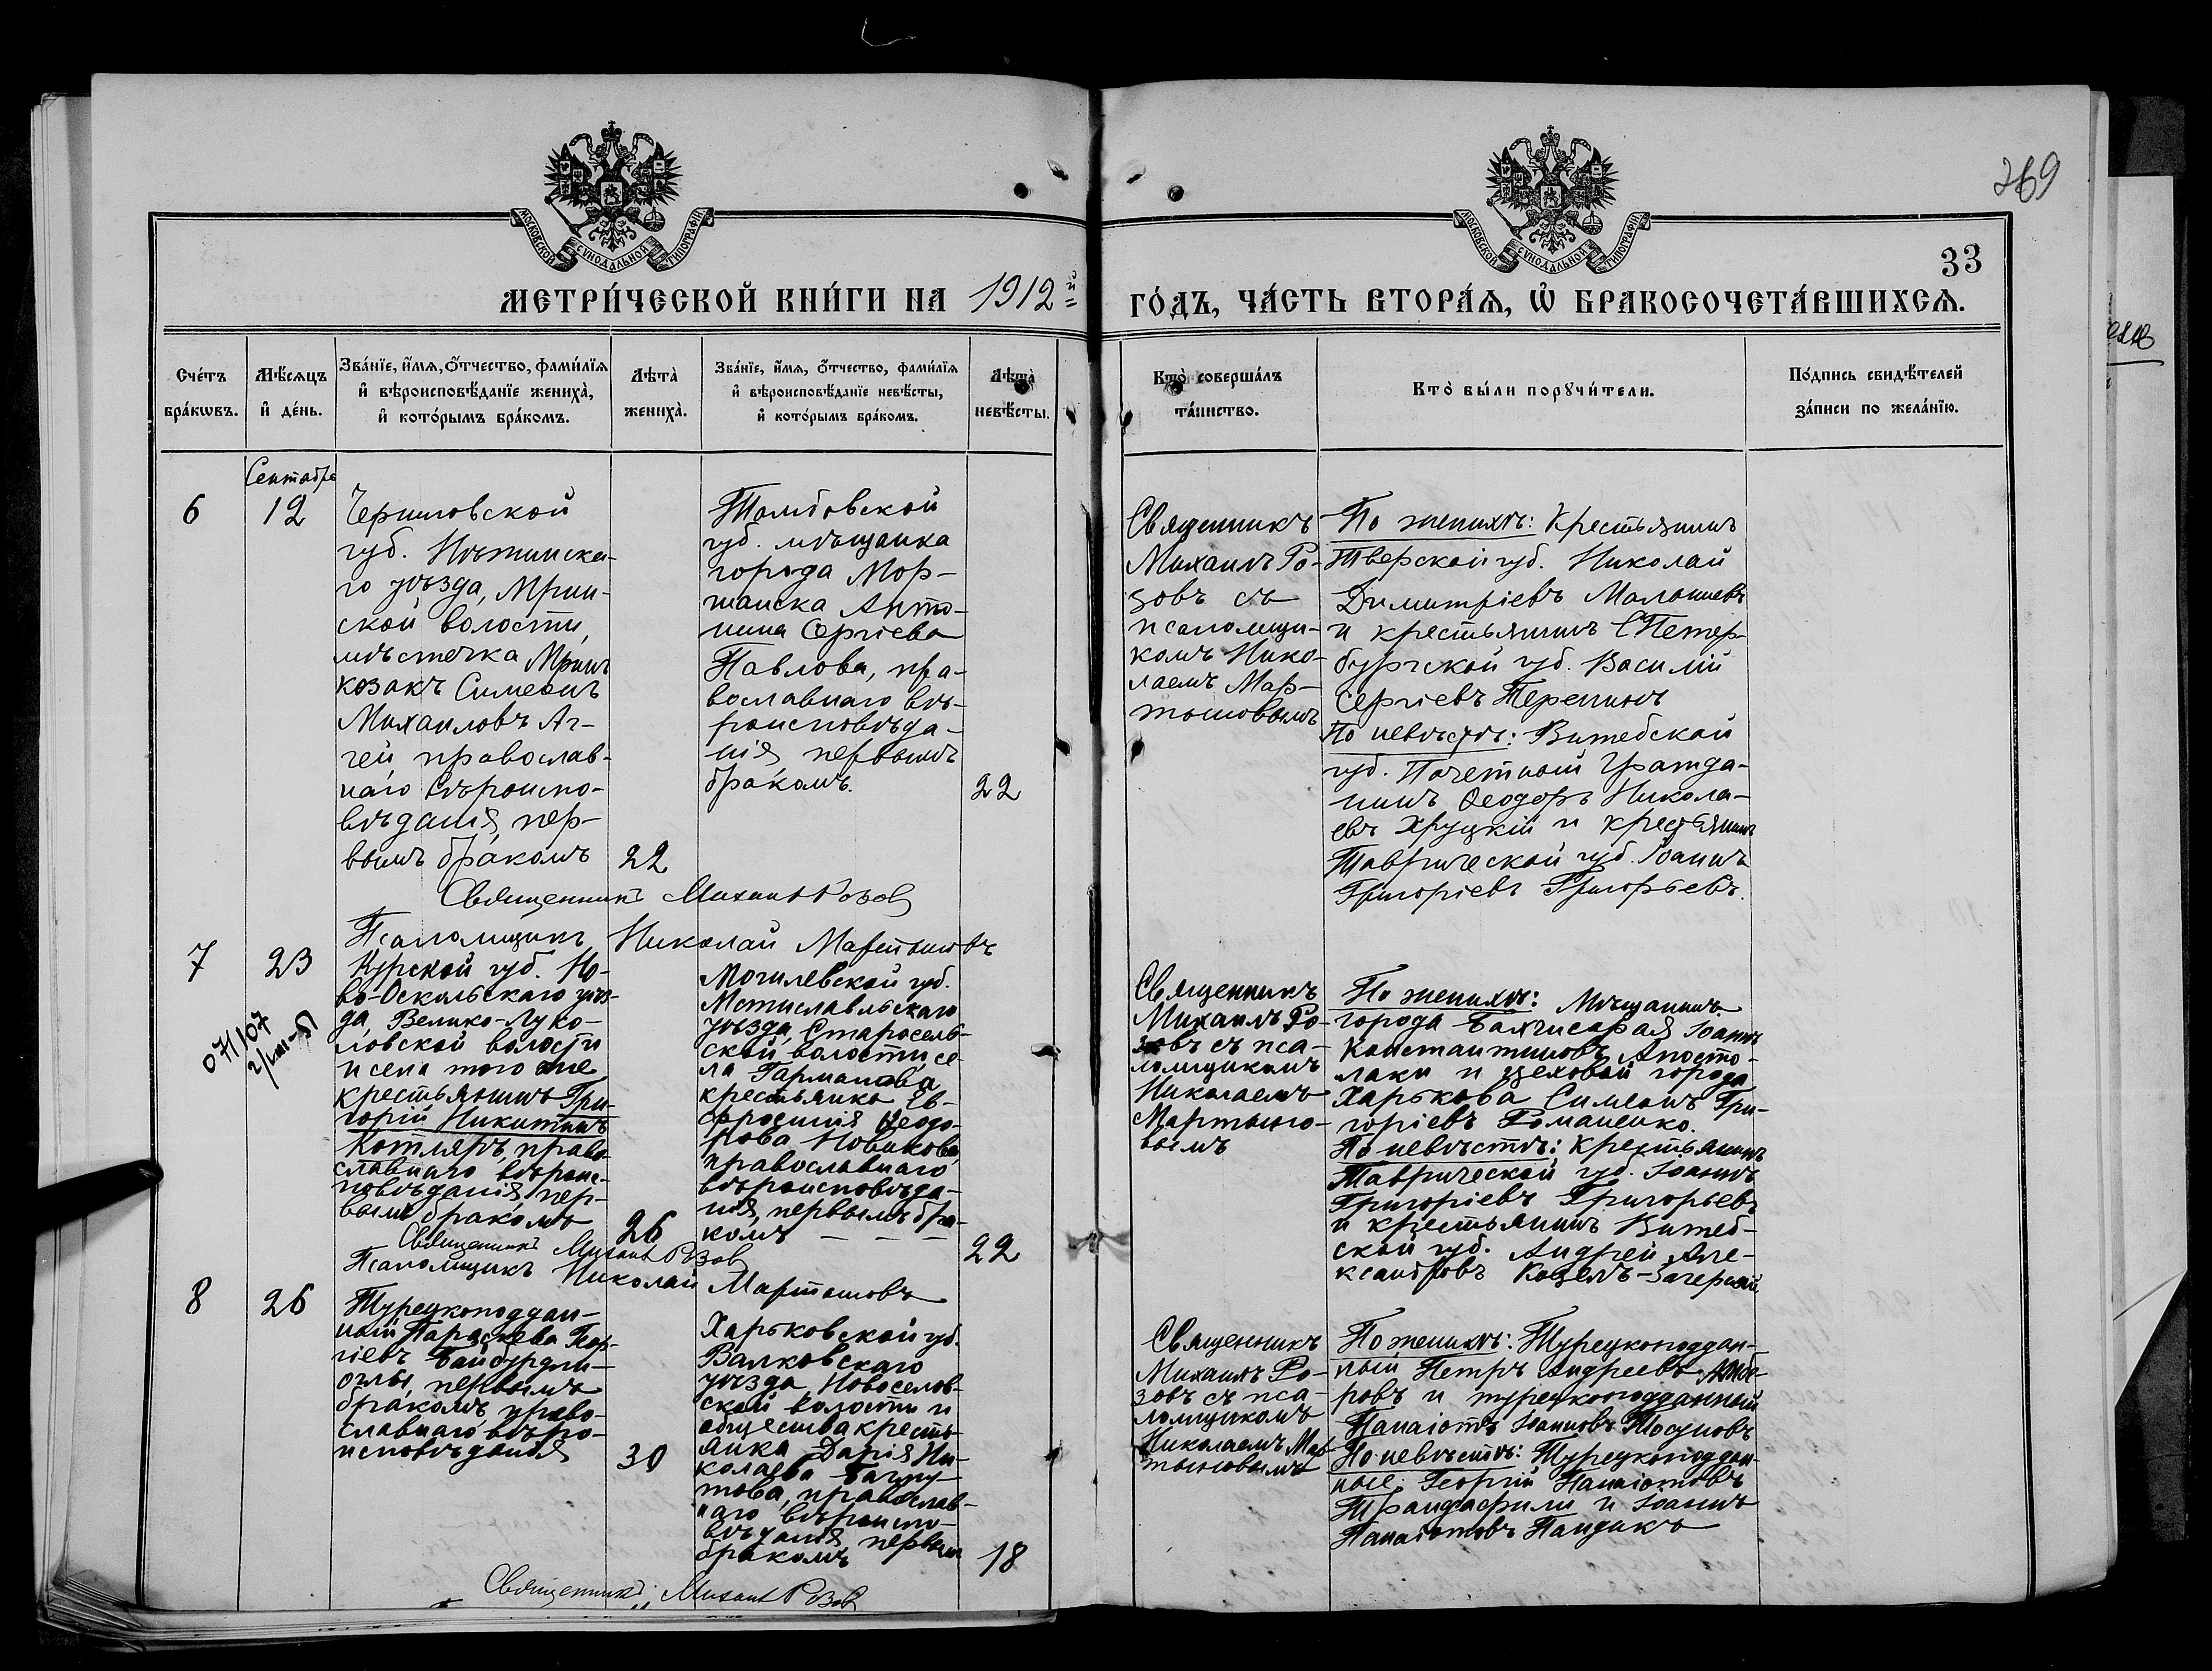 269
33
МОСКОВСКОЙ СѴНОДАЛЬНОЙ ТИПОГРАФІИ
МОСКОВСКОЙ СѴНОДАЛЬНОЙ ТИПОГРАФІИ
МЕТРИ́ЧЕСКОЙ КНИ́ГИ НА 1912й
ГО́ДЪ, ЧА́СТЬ ВТОРА́Я, Ѡ҆ БРАКОСОЧЕТА́ВШИХСЯ.
Сче́тъ
бра́кѡвъ.
Мѣ́сяцъ
и҆ де́нь.
Зва́нїе, и҆́мя, о҆́тчество, фами́лїя
и҆ вѣроисповѣ́данїе жениха̀,
и҆ кото́рымъ бра́комъ.
Лѣта̀
жениха̀.
Зва́нїе, и҆́мя, о҆́тчество, фами́лїя
и҆ вѣроисповѣ́данїе невѣ́сты,
и҆ кото́рымъ бра́комъ.
Лѣта̀
невѣ́сты.
Кто̀ соверша́лъ
та́инство.
Кто̀ бы́ли порꙋчи́тели.
По́дпись свидѣ́телей
за́писи по жела́нїю.
Сентябрь
6
12
Черниговской
губ. Нѣжинска-
го уѣзда, Мрин-
ской волости,
мѣстечка Мринъ
козакъ Симеонъ
Михаиловъ Аг-
гей православ-
наго вѣроиспо-
вѣданія, пер-
вымъ бракомъ
22
Тамбовской
губ. мѣщанка
города Мор-
шанска Анто-
нина Сергіева
Павлова, пра-
вославнаго вѣ-
роисповѣда-
нія, первымъ
бракомъ.
22
Священникъ
Михаилъ Ро-
зовъ съ
псаломщи-
комъ Нико-
лаемъ Мар-
тыновымъ
По женихѣ: Крестьянинъ
Тверской губ. Николай
Димитріевъ
и крестьянинъ СПетер-
бургской губ. Василій
Сергіевъ
По невѣстѣ: Витебской
губ. Почетный Гражда-
нинъ Ѳеодоръ Никола-
евъ Хруцкій и крестьянинъ
Таврической губ. Іоаннъ
Григоріевъ Григорьевъ.
Священникъ Михаилъ Розовъ
Псаломщикъ Николай Мартыновъ
7
23
Курской губ. Но-
во-Оскольскаго уѣз-
да, Велико-
волости
и села того же
крестьянинъ Гри-
горій Никитинъ
Котляръ, право-
славнаго вѣроис-
повѣданія, пер-
вымъ бракомъ
26
Могилевской губ.
Мстиславльскаго
уѣзда, Старосель-
ской волости, се-
ла
крестьянка Ев-
фросинія Ѳеодо-
рова Новикова
православнаго
вѣроисповѣда-
нія, первымъ бра-
комъ
22
Священникъ
Михаилъ Ро-
зовъ съ пса-
ломщикомъ
Николаемъ
Мартыно-
вымъ
По женихѣ: Мѣщанинъ
города Бахчисарая Іоаннъ
Константиновъ Апосто-
лаки и цеховой города
Харькова Симеонъ Гри-
горіевъ Романенко.
По невѣстѣ: Крестьянинъ
Таврической губ. Іоаннъ
Григоріевъ Григорьевъ
и крестьянинъ Витеб-
ской губ. Андрей Але-
ксандровъ
Священникъ Михаилъ Розовъ
Псаломщикъ Николай Мартыновъ
8
26
Турецкоподдан-
ный Параскева Геор-
гіевъ Байбурдли-
оглы, первымъ
бракомъ, право-
славнаго вѣро-
исповѣданія
30
Харьковской губ.
Валковскаго
уѣзда, Новоселов-
ской волости и
общества кресть-
янка Дарія Ни-
колаева
православ-
наго вѣроиспо-
вѣданія, первымъ
бракомъ
18
Священникъ
Михаилъ Ро-
зовъ съ пса-
ломщикомъ
Николаемъ Мар-
тыновымъ
По женихѣ: Турецкоподдан-
ный Петръ Андреевъ
и турецкоподданный
Панаіотъ Іоанновъ Тосуновъ
По невѣстѣ: Турецкоподдан-
ные: Георгій Панаіотовъ
Трандафили и Іоаннъ
Панаіотовъ
Священникъ Михаилъ Розовъ